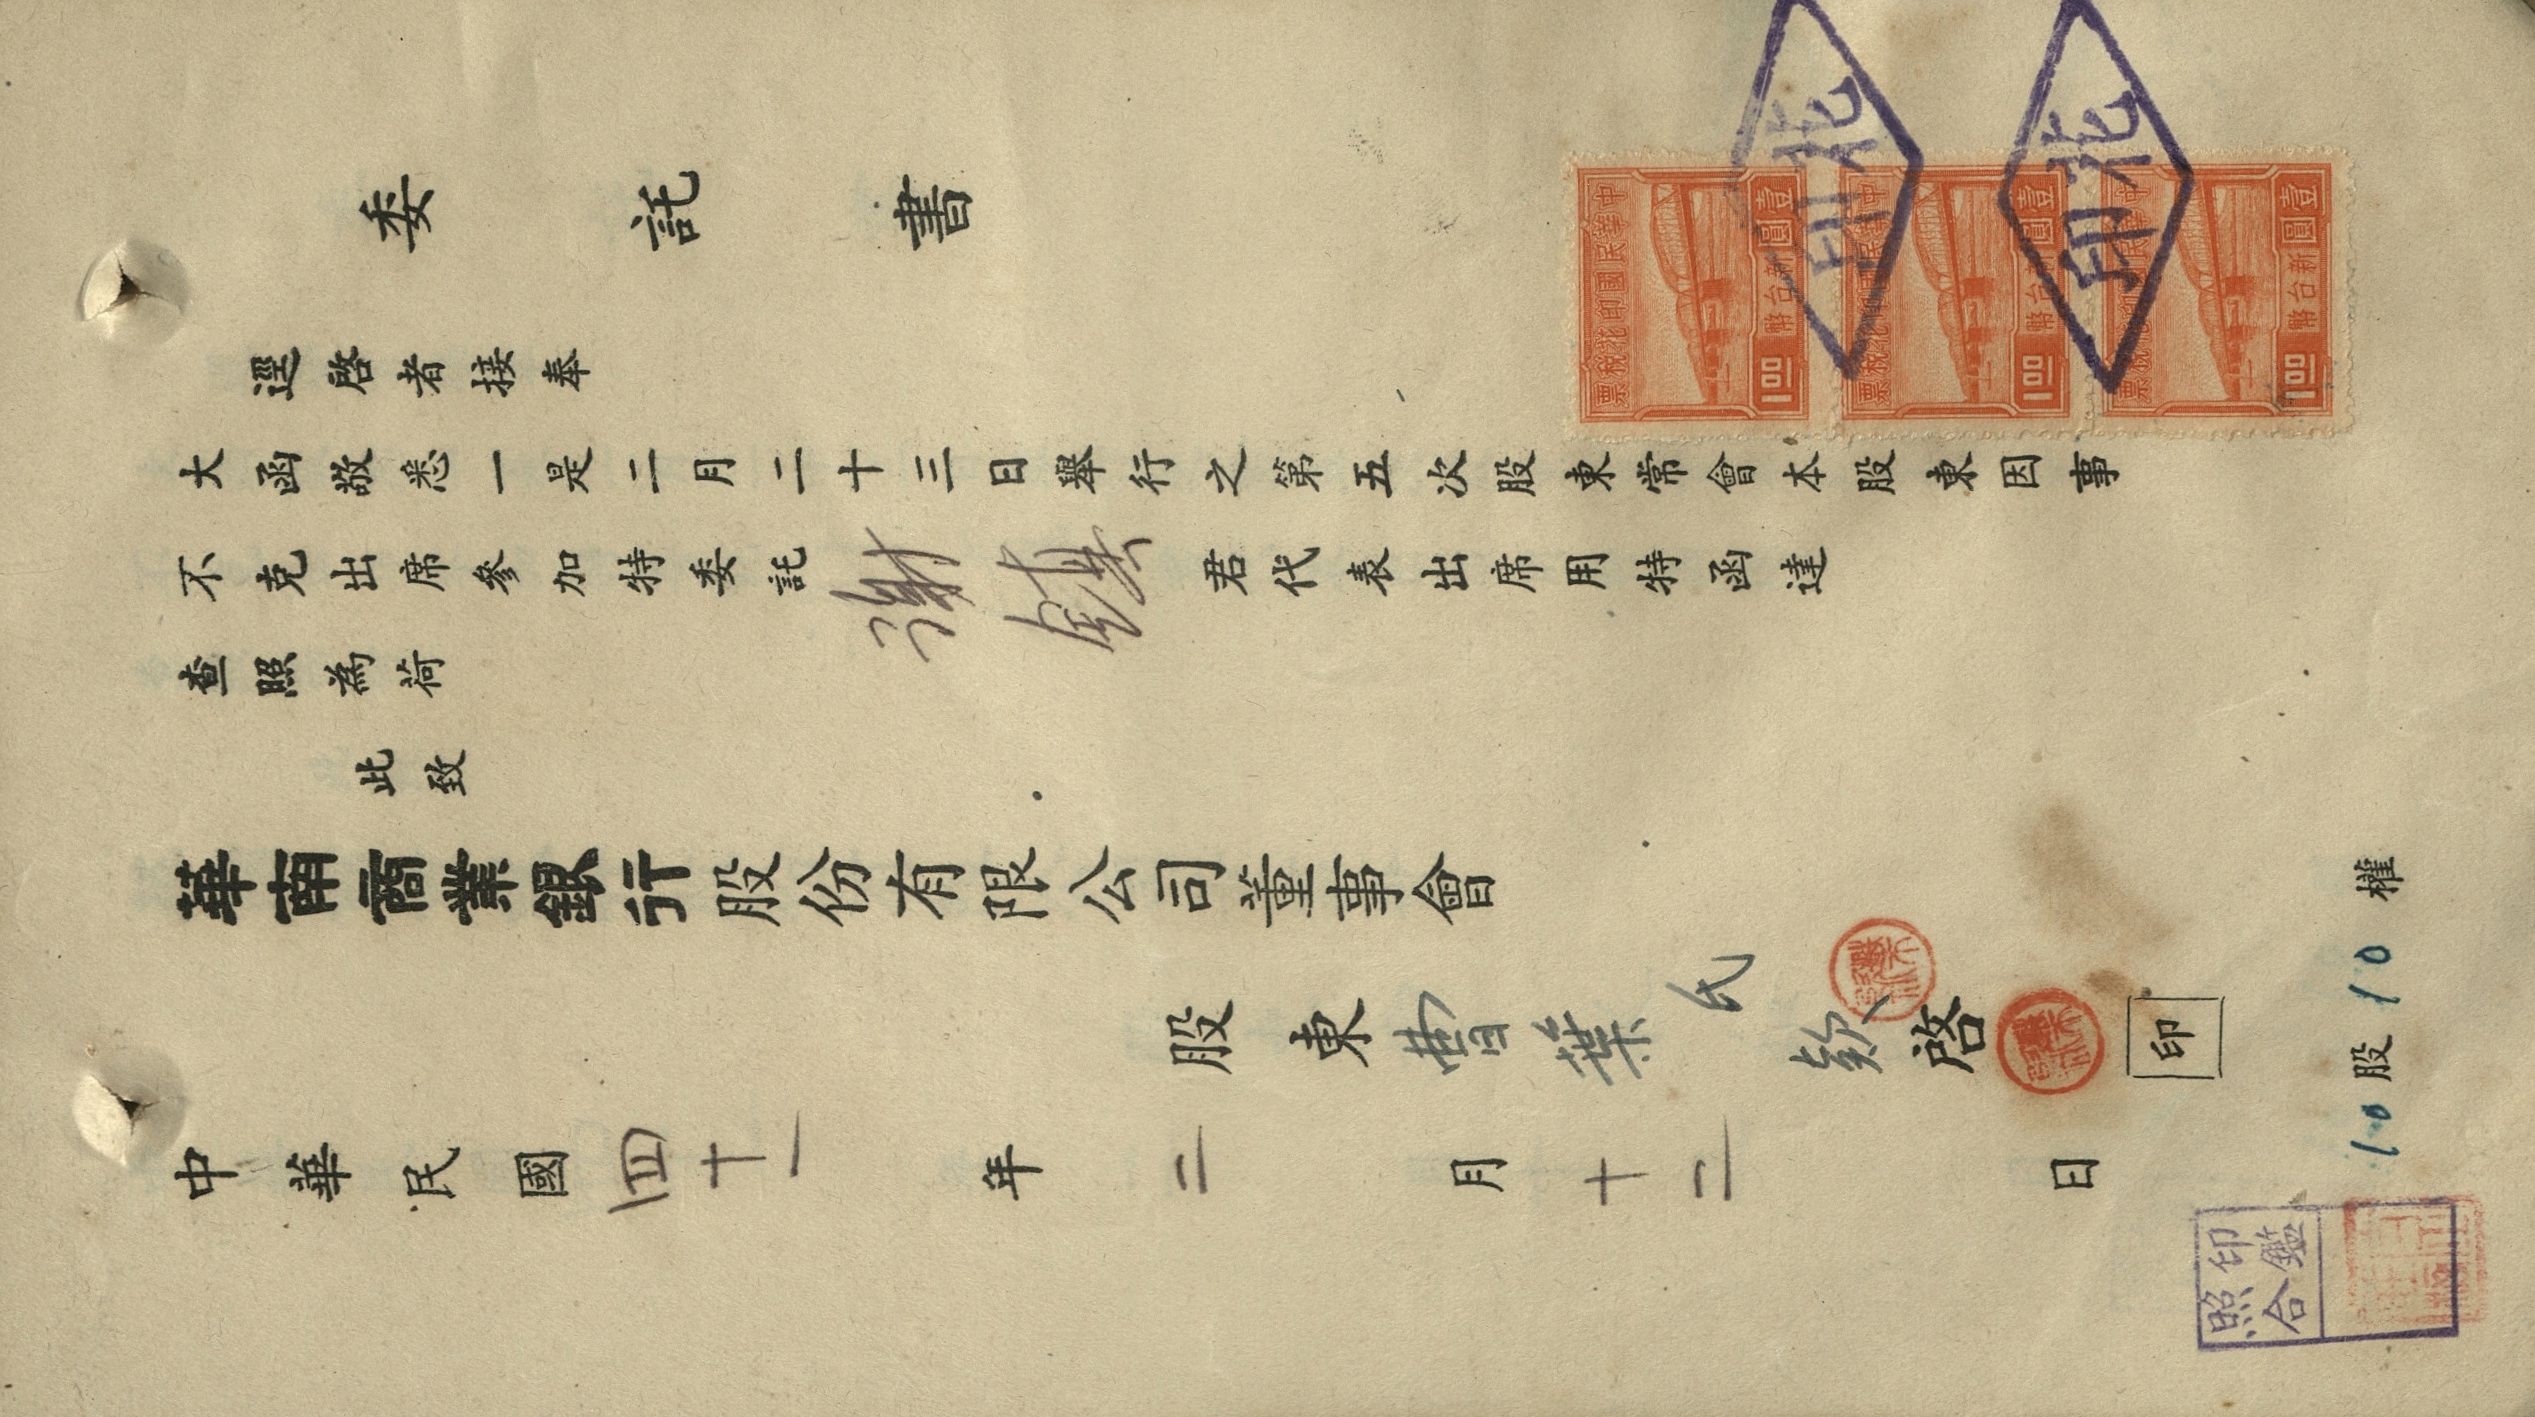 委託書
逕啓者接奉
大函敬悉一是二月二十三日舉行之第五次股東常會本股東因事
不克出席參加特委託謝鎮君代表出席用特函達
查照為荷
此致
華南商業銀行股份有限公司董事會
股東曹葉氏欵啓 印
中華民國四十一年二月十二日
10股10權
印鑑
照合
中華民國印花稅票
壹圓新台幣
1.00
中華民國印花稅票
壹圓新台幣
1.00
中華民國印花稅票
壹圓新台幣
1.00
花印
花印